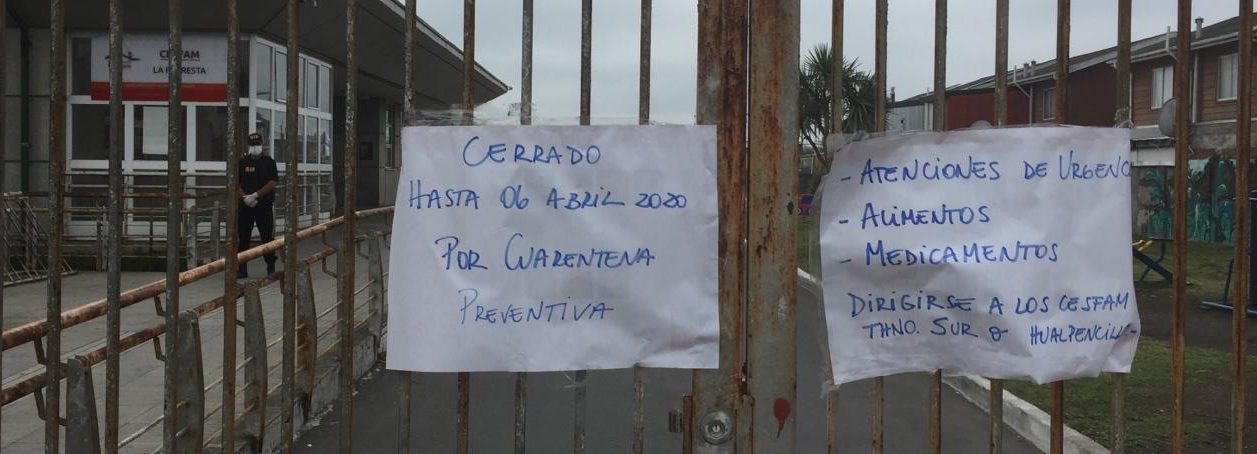 LA FLORESTA
CERRADO
HASTA 06 ABRIL 2020
POR CUARENTENA
PREVENTIVA
- ATENCIONES DE URGENC
- ALIMENTOS
- MEDICAMENTOS
DIRIGIRSE A LOS CESFAM
THNO. SUR O HUALPENCILLO